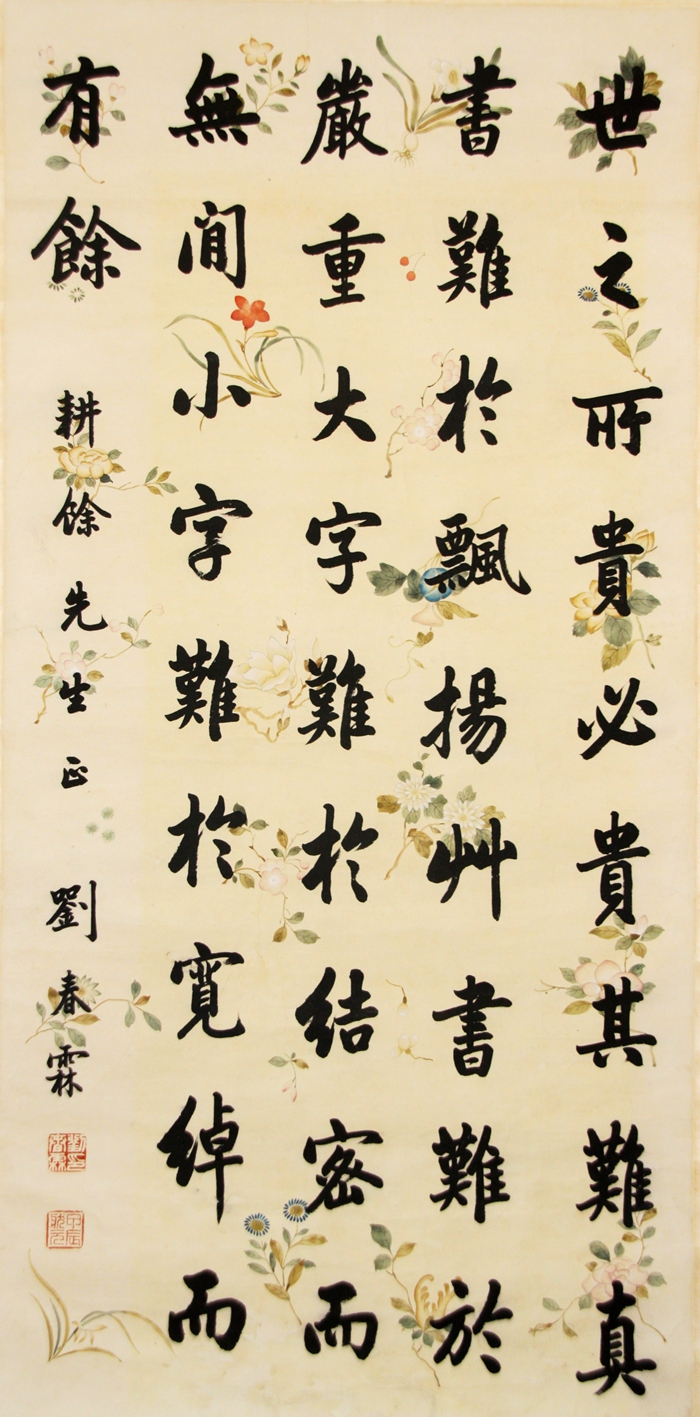 世之所貴必貴其難真
書難於飄揚艸書難於
嚴重大字難於結密而
無間小字難於寬綽而
有餘
耕餘先生正
劉春霖
劉春霖印
甲辰狀元